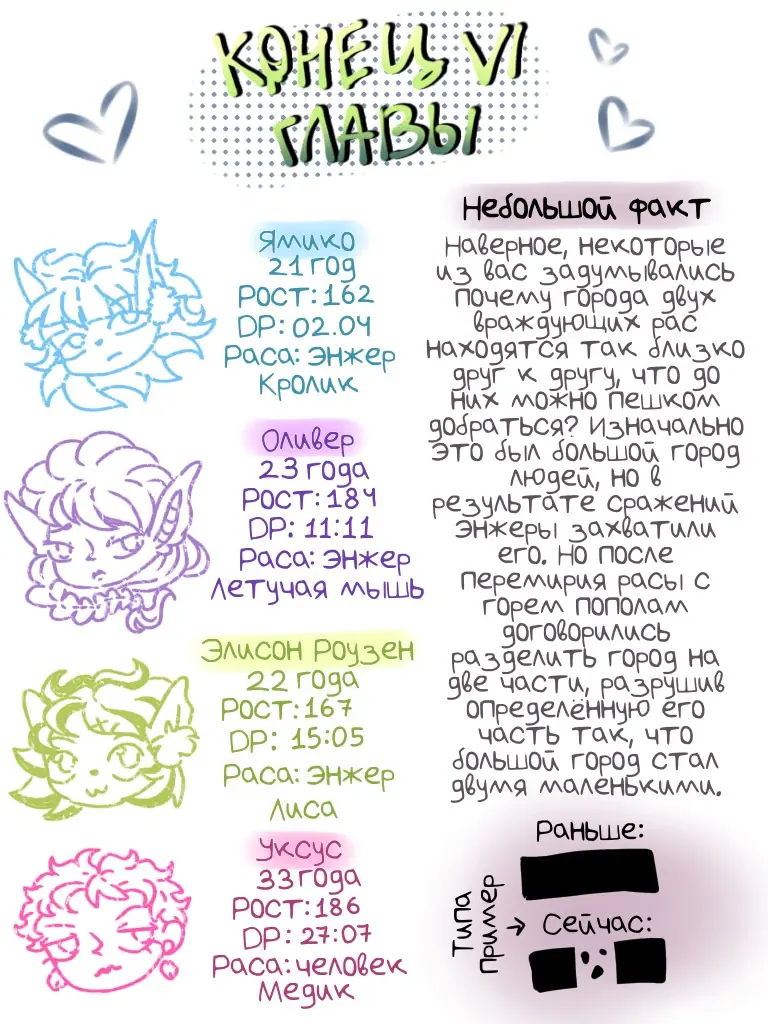 КОНЕЦ VI
ГЛАВЫ
Ямико
21 год
Рост: 162
DP: 02.04
Раса: Энжер
Кролик
Оливер
23 года
Рост: 184
DP: 11:11
Раса: Энжер
Летучая мышь
Элисон Роузен
22 года
Рост: 167
DP: 15:05
Раса: Энжер
Лиса
Уксус
33 года
Рост: 186
DP: 27:07
Раса: человек
Медик
Небольшой факт
Наверное, некоторые
из вас задумывались
почему города двух
враждующих рас
находятся так близко
друг к другу, что до
них можно пешком
добраться? Изначально
это был большой город
людей, но в
результате сражений
энжеры захватили
его. Но после
перемирия расы с
горем пополам
договорились
разделить город на
две части, разрушив
определённую его
часть так, что
большой город стал
двумя маленькими.
Раньше:
Типа
пример
Сейчас: